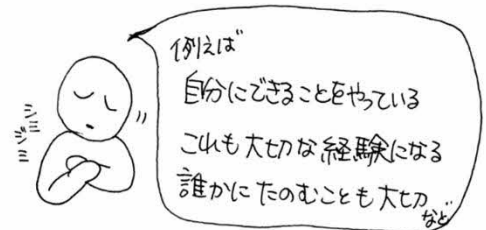 例えば
自分にできることをやっている
これも大切な経験になる
誰かにたのむことも大切
など